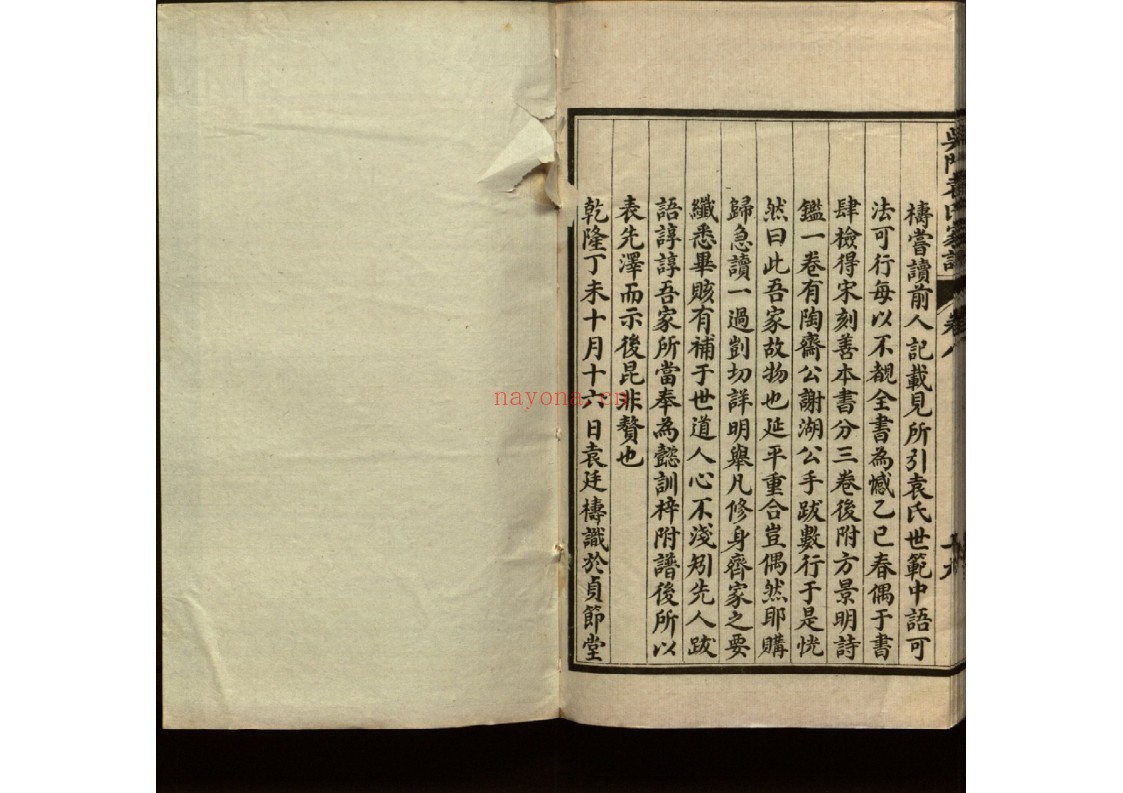 吳門袁氏家譜 卷八 十九
檮嘗讀前人記載見所引袁氏世範中語可
法可行每以不覩全書為憾乙巳春偶于書
肆檢得宋刻善本書分三卷後附方景明詩
鑑一卷有陶齋公謝湖公手跋數行于是恍
然曰此吾家故物也延平重合豈偶然耶購
歸急讀一過剴切詳明舉凡修身齊家之要
纖悉畢賅有補于世道人心不淺矧先人跋
語諄諄吾家所當奉為懿訓梓附譜後所以
表先澤而示後昆非贅也
乾隆丁未十月十六日袁廷檮識於貞節堂
nayona.cn